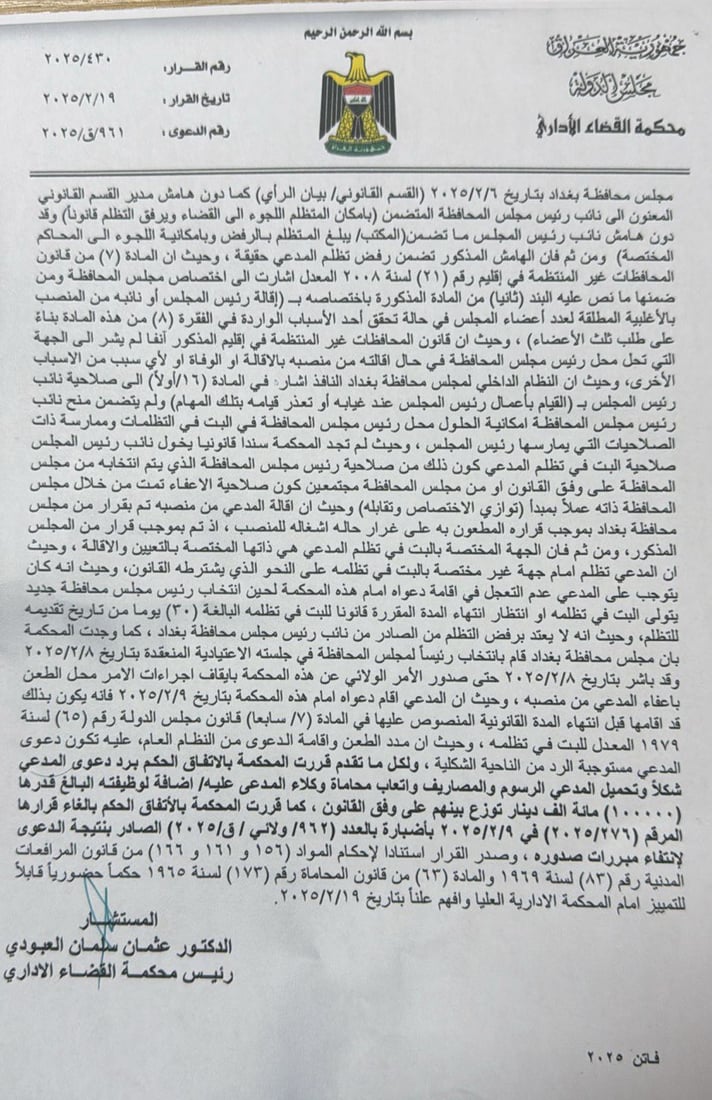 بسم الله الرحمن الرحيم
جمهورية العراق
مجلس الدولة
محكمة القضاء الأداري
رقم القرار: ٢٠٢٥/٤٣٠
تاريخ القرار : ٢٠٢٥/٢/١٩
رقم الدعوى : ٩٦١/ق/٢٠٢٥
مجلس محافظة بغداد بتاريخ ٢٠٢٥/٢/٦ (القسم القانوني/ بيان الرأي) كما دون هامش مدير القسم القانوني
المعنون الى نائب رئيس مجلس المحافظة المتضمن (بامكان المتظلم اللجوء الى القضاء ويرفق التظلم قانوناً) وقد
دون هامش نائب رئيس المجلس ما تضمن(المكتب/ يبلغ المتظلم بالرفض وبامكانية اللجوء الى المحاكم
المختصة) ومن ثم فان الهامش المذكور تضمن رفض تظلم المدعي حقيقة ، وحيث ان المادة (٧) من قانون
المحافظات غير المنتظمة في إقليم رقم (٢١) لسنة ٢٠٠٨ المعدل اشارت الى اختصاص مجلس المحافظة ومن
ضمنها ما نص عليه البند (ثانيا) من المادة المذكورة باختصاصه بـ (إقالة رئيس المجلس أو نائبه من المنصب
بالأغلبية المطلقة لعدد أعضاء المجلس في حالة تحقق أحد الأسباب الواردة في الفقرة (٨) من هذه المادة بناءً
على طلب ثلث الأعضاء) ، وحيث ان قانون المحافظات غير المنتظمة في إقليم المذكور آنفا لم يشر الى الجهة
التي تحل محل رئيس مجلس المحافظة في حال اقالته من منصبه بالاقالة او الوفاة او لأي سبب من الاسباب
الأخرى، وحيث ان النظام الداخلي لمجلس محافظة بغداد النافذ اشار في المادة (١٦/أولاً) الى صلاحية نائب
رئيس المجلس بـ (القيام بأعمال رئيس المجلس عند غيابه أو تعذر قيامه بتلك المهام) ولم يتضمن منح نائب
رئيس مجلس المحافظة امكانية الحلول محل رئيس مجلس المحافظة في البت في التظلمات وممارسة ذات
الصلاحيات التي يمارسها رئيس المجلس ، وحيث لم تجد المحكمة سندا قانونيا يخول نائب رئيس المجلس
صلاحية البت في تظلم المدعي كون ذلك من صلاحية رئيس مجلس المحافظة الذي يتم انتخابه من مجلس
المحافظة على وفق القانون او من مجلس المحافظة مجتمعين كون صلاحية الاعفاء تمت من خلال مجلس
المحافظة ذاته عملاً بمبدأ (توازي الاختصاص وتقابله) وحيث ان اقالة المدعي من منصبه تم بقرار من مجلس
محافظة بغداد بموجب قراره المطعون به على غرار حاله اشغاله للمنصب ، اذ تم بموجب قرار من المجلس
المذكور، ومن ثم فان الجهة المختصة بالبت في تظلم المدعي هي ذاتها المختصة بالتعيين والاقالة ، وحيث
ان المدعي تظلم امام جهة غير مختصة بالبت في تظلمه على النحو الذي يشترطه القانون، وحيث انه كان
يتوجب على المدعي عدم التعجل في اقامة دعواه امام هذه المحكمة لحين انتخاب رئيس مجلس محافظة جديد
يتولى البت في تظلمه او انتظار انتهاء المدة المقررة قانونا للبت في تظلمه البالغة (٣٠) يوما من تاريخ تقديمه
للتظلم، وحيث انه لا يعتد برفض التظلم من الصادر من نائب رئيس مجلس محافظة بغداد ، كما وجدت المحكمة
بان مجلس محافظة بغداد قام بانتخاب رئيساً لمجلس المحافظة في جلسته الاعتيادية المنعقدة بتاريخ ٢٠٢٥/٢/٨
وقد باشر بتاريخ ٢٠٢٥/٢/٨ حتى صدور الأمر الولائي عن هذه المحكمة بايقاف اجراءات الامر محل الطعن
باعفاء المدعي من منصبه ، وحيث ان المدعي اقام دعواه امام هذه المحكمة بتاريخ ٢٠٢٥/٢/٩ فانه يكون بذلك
قد اقامها قبل انتهاء المدة القانونية المنصوص عليها في المادة (٧/ سابعا) قانون مجلس الدولة رقم (٦٥) لسنة
١٩٧٩ المعدل للبت في تظلمه ، وحيث ان مدد الطعن واقامة الدعوى من النظام العام، عليه تكون دعوى
المدعي مستوجبة الرد من الناحية الشكلية ، ولكل ما تقدم قررت المحكمة بالاتفاق الحكم برد دعوى المدعي
شكلاً وتحميل المدعي الرسوم والمصاريف واتعاب محاماة وكلاء المدعى عليه/ اضافة لوظيفته البالغ قدرها
(١٠٠٠٠٠) مائة الف دينار توزع بينهم على وفق القانون ، كما قررت المحكمة بالأتفاق الحكم بالغاء قرارها
المرقم (٢٠٢٥/٢٧٦) في ٢٠٢٥/٢/٩ بأضبارة بالعدد (٩٦٢/ ولائي / ق/٢٠٢٥) الصادر بنتيجة الدعوى
لإنتفاء مبررات صدوره ، وصدر القرار استنادا لإحكام المواد (١٥٦ و ١٦١ و ١٦٦) من قانون المرافعات
المدنية رقم (٨٣) لسنة ١٩٦٩ والمادة (٦٣) من قانون المحاماة رقم (١٧٣) لسنة ١٩٦٥ حكماً حضورياً قابلاً
للتمييز امام المحكمة الادارية العليا وافهم علناً بتاريخ ٢٠٢٥/٢/١٩.
المستشار
الدكتور عثمان سلمان العبودي
رئيس محكمة القضاء الاداري
فاتن ٢٠٢٥